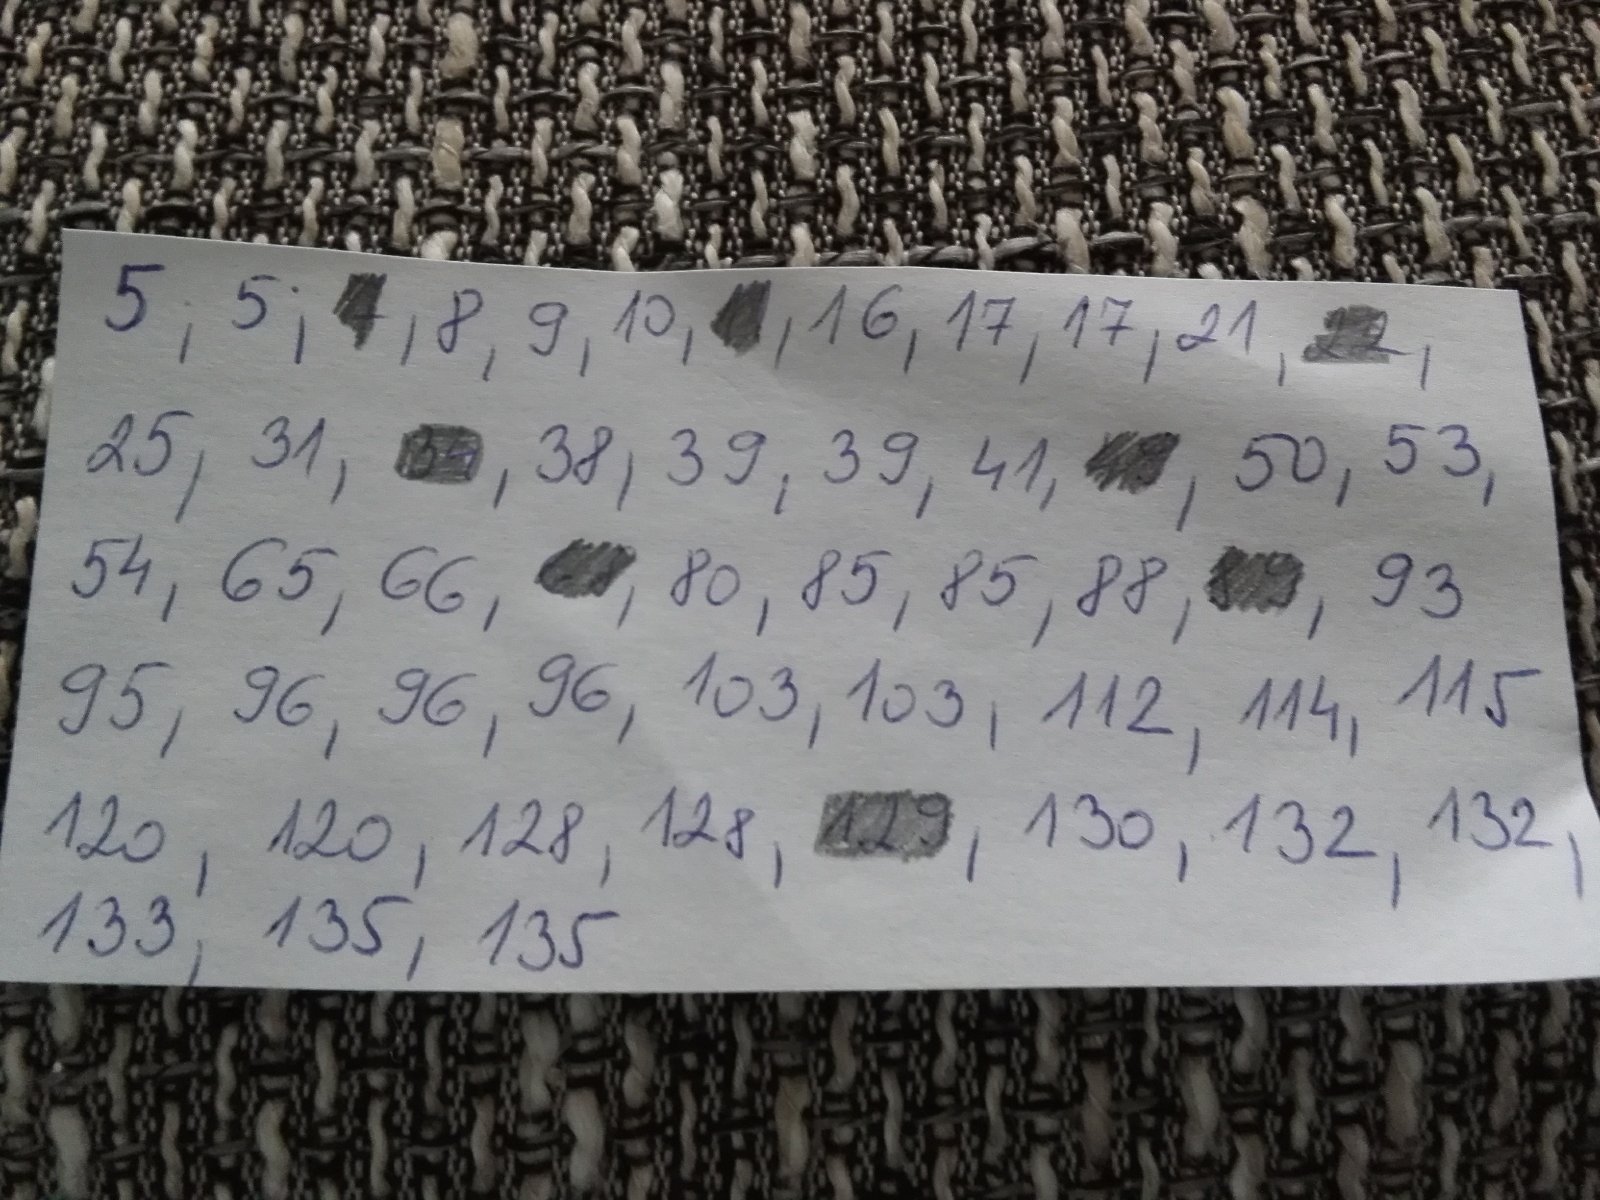 5, 5, 7, 8, 9, 10, , 16, 17, 17, 21, 22,
25, 31, 34, 38, 39, 39, 41, 49, 50, 53,
54, 65, 66, , 80, 85, 85, 88, 89, 93
95, 96, 96, 96, 103, 103, 112, 114, 115
120, 120, 128, 128, 129, 130, 132, 132,
133, 135, 135